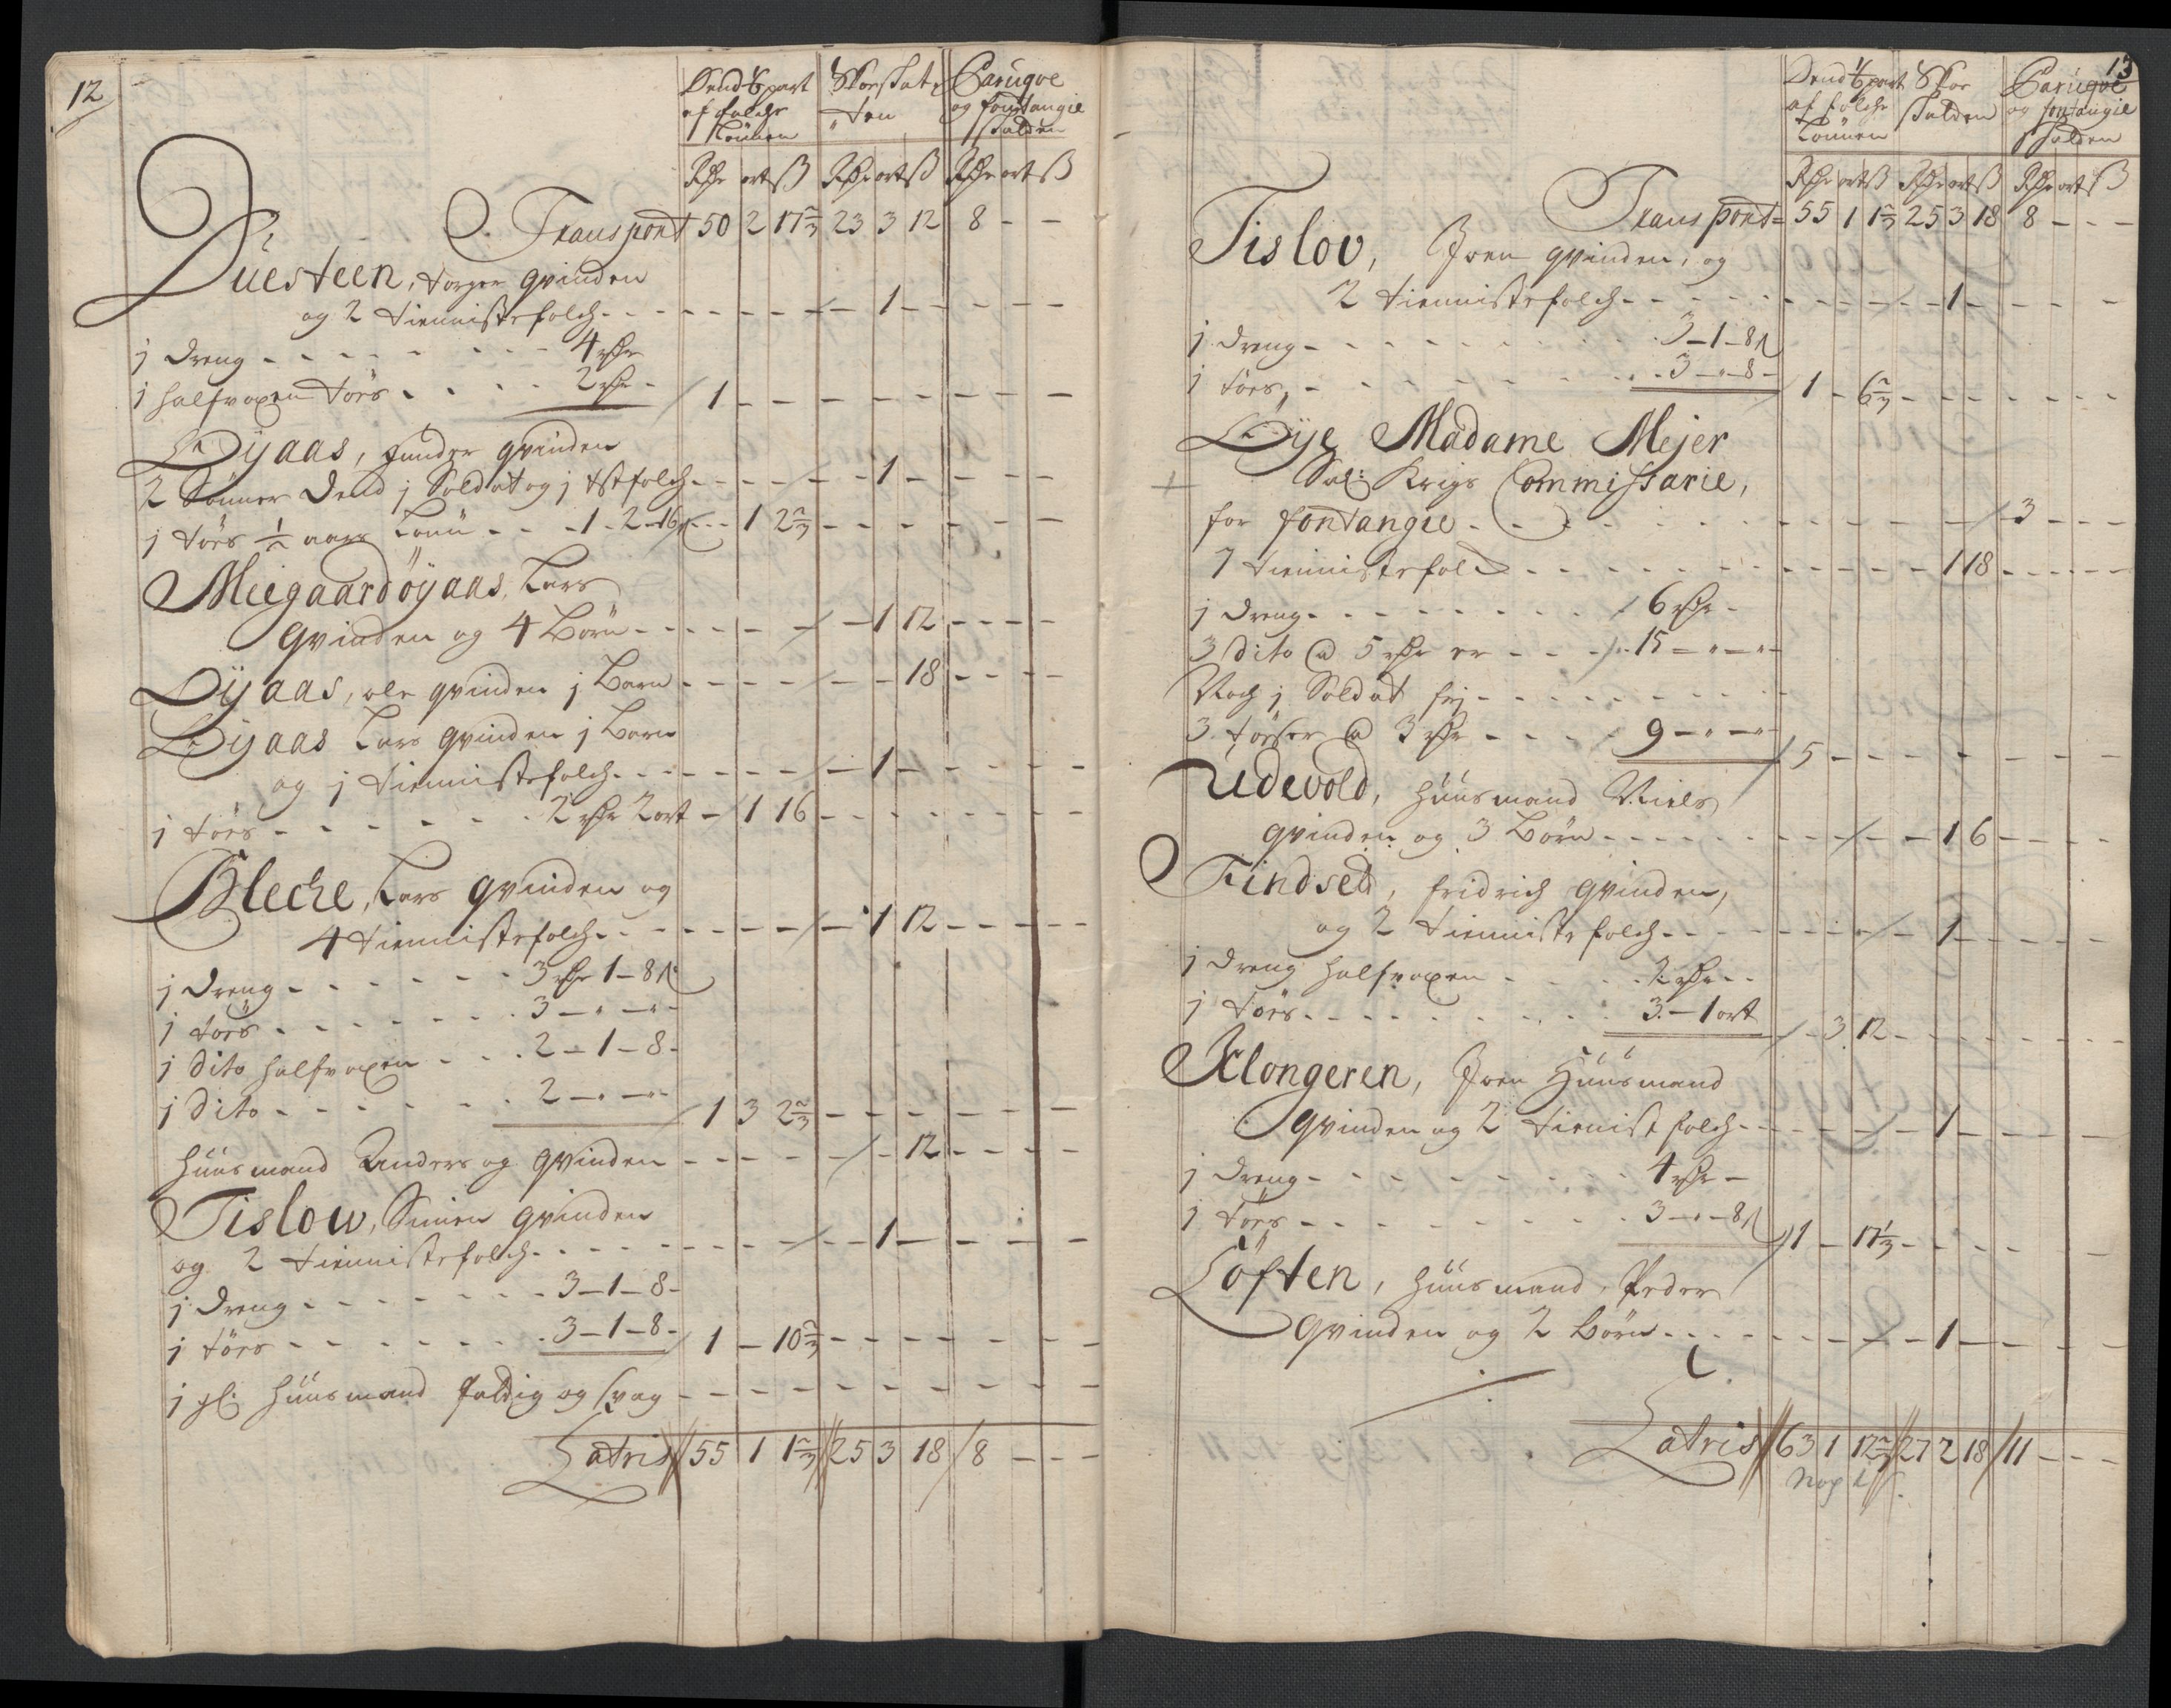 12
Dend 1/6 part af folckes Lönnen
Skoe skatten
Paruqve og fontangie skatten
Rdr ort ß Rdr ort ß Rdr ort ß
Transport 50 2 17 2/3 23 3 12 8 - -
Duesteen, Torger qvinden
og 2 tienniste folch - - - 1 - - - -
j dreng - - - 4 rdr
j halfvoxen tøes - - 2 rdr - / 1 - - - - - - - -
Øyaas, Gunder qvinden
2 Sönner dend j Soldat og j tstfolch - - - 1 - - - -
j tøes 1/2 aars Lönn - - 1 - 2 - 16 ß - - 1 2 2/3 - - - - - -
Meegaardøyaas, Lars
qvinden og 4 Börn - - - - 1 12 - - -
Øyaas, ole qvinden j Barn - - - - 18 - - -
Øyaas Lars qvinden j Barn
og j tienniste folch - - - 1 - - - -
j tøes - - - 2 rdr 2 ort - 1 16 - - - - - -
Bleche, Lars qvinden og
4 tienniste folch - - - 1 12 - - -
j dreng - - - 3 rdr 1 - 8 ß
j tøes - - - 3 - " - " -
j dito halfvoxen - - 2 - 1 - 8 -
j dito - - - 2 - " - " - / 1 3 2 2/3 - - - - - -
Huusmand Anders og qvinden - - - - 12 - - -
Tislow, Simen qvinden
og 2 tienniste folch - - - 1 - - - -
j dreng - - - 3 - 1 - 8 -
j tøes - - - 3 - 1 - 8 - / 1 - 10 2/3 - - - - - -
j Huusmand fattig og svag - - - - - - - - -
Latris 55 1 1 2/3 25 3 18 8 - - -
13
Dend 1/6 part af folche Lönnen
Skoe skatten
Paruqve og fontangie skatten
Rdr ort ß Rdr ort ß Rdr ort ß
Transport 55 1 1 2/3 25 3 18 8 - - -
Tislov, Joen qvinden, og
2 tienniste folch - - - 1 - - - -
j dreng - - - 3 - 1 - 8 ß
j tøes, - - - 3 - " - 8 - 1 - 6 2/3 - - - - - -
Øye Madame Mejer
Sal: Krigs Commissarie,
for fontangie - - - 3 - - -
7 tienniste folch - - - 1 18 - - -
j dreng - - - 6 rdr -
3 dito @ 5 rdr er - - - 15 - " - " -
Noch j Soldat frj - - -
3 tøesser @ 3 rdr - - - 9 - " - " - 5 - - - - - - - -
Udevold, Huusmand Niels
qvinden og 3 Börn - - - 1 6 - - -
Findset, fridrich qvinden,
og 2 tienniste folch - - - 1 - - - -
j dreng halfvoxen - - 2 rdr - -
j tøes - - - 3 - 1 ort - 3 12 - - - - - -
Klongeren, Joen Huusmand
qvinden og 2 tieniste folch - - - 1 - - - -
j dreng - - - 4 rdr -
j tøes - - - 3 - " - 8 ß 1 - 17 1/3 - - - - - -
Löften, Huusmand, Peder
qvinden og 2 börn - - - 1 - - - -
Latris 63 1 12 2/3 27 2 18 11 - - -